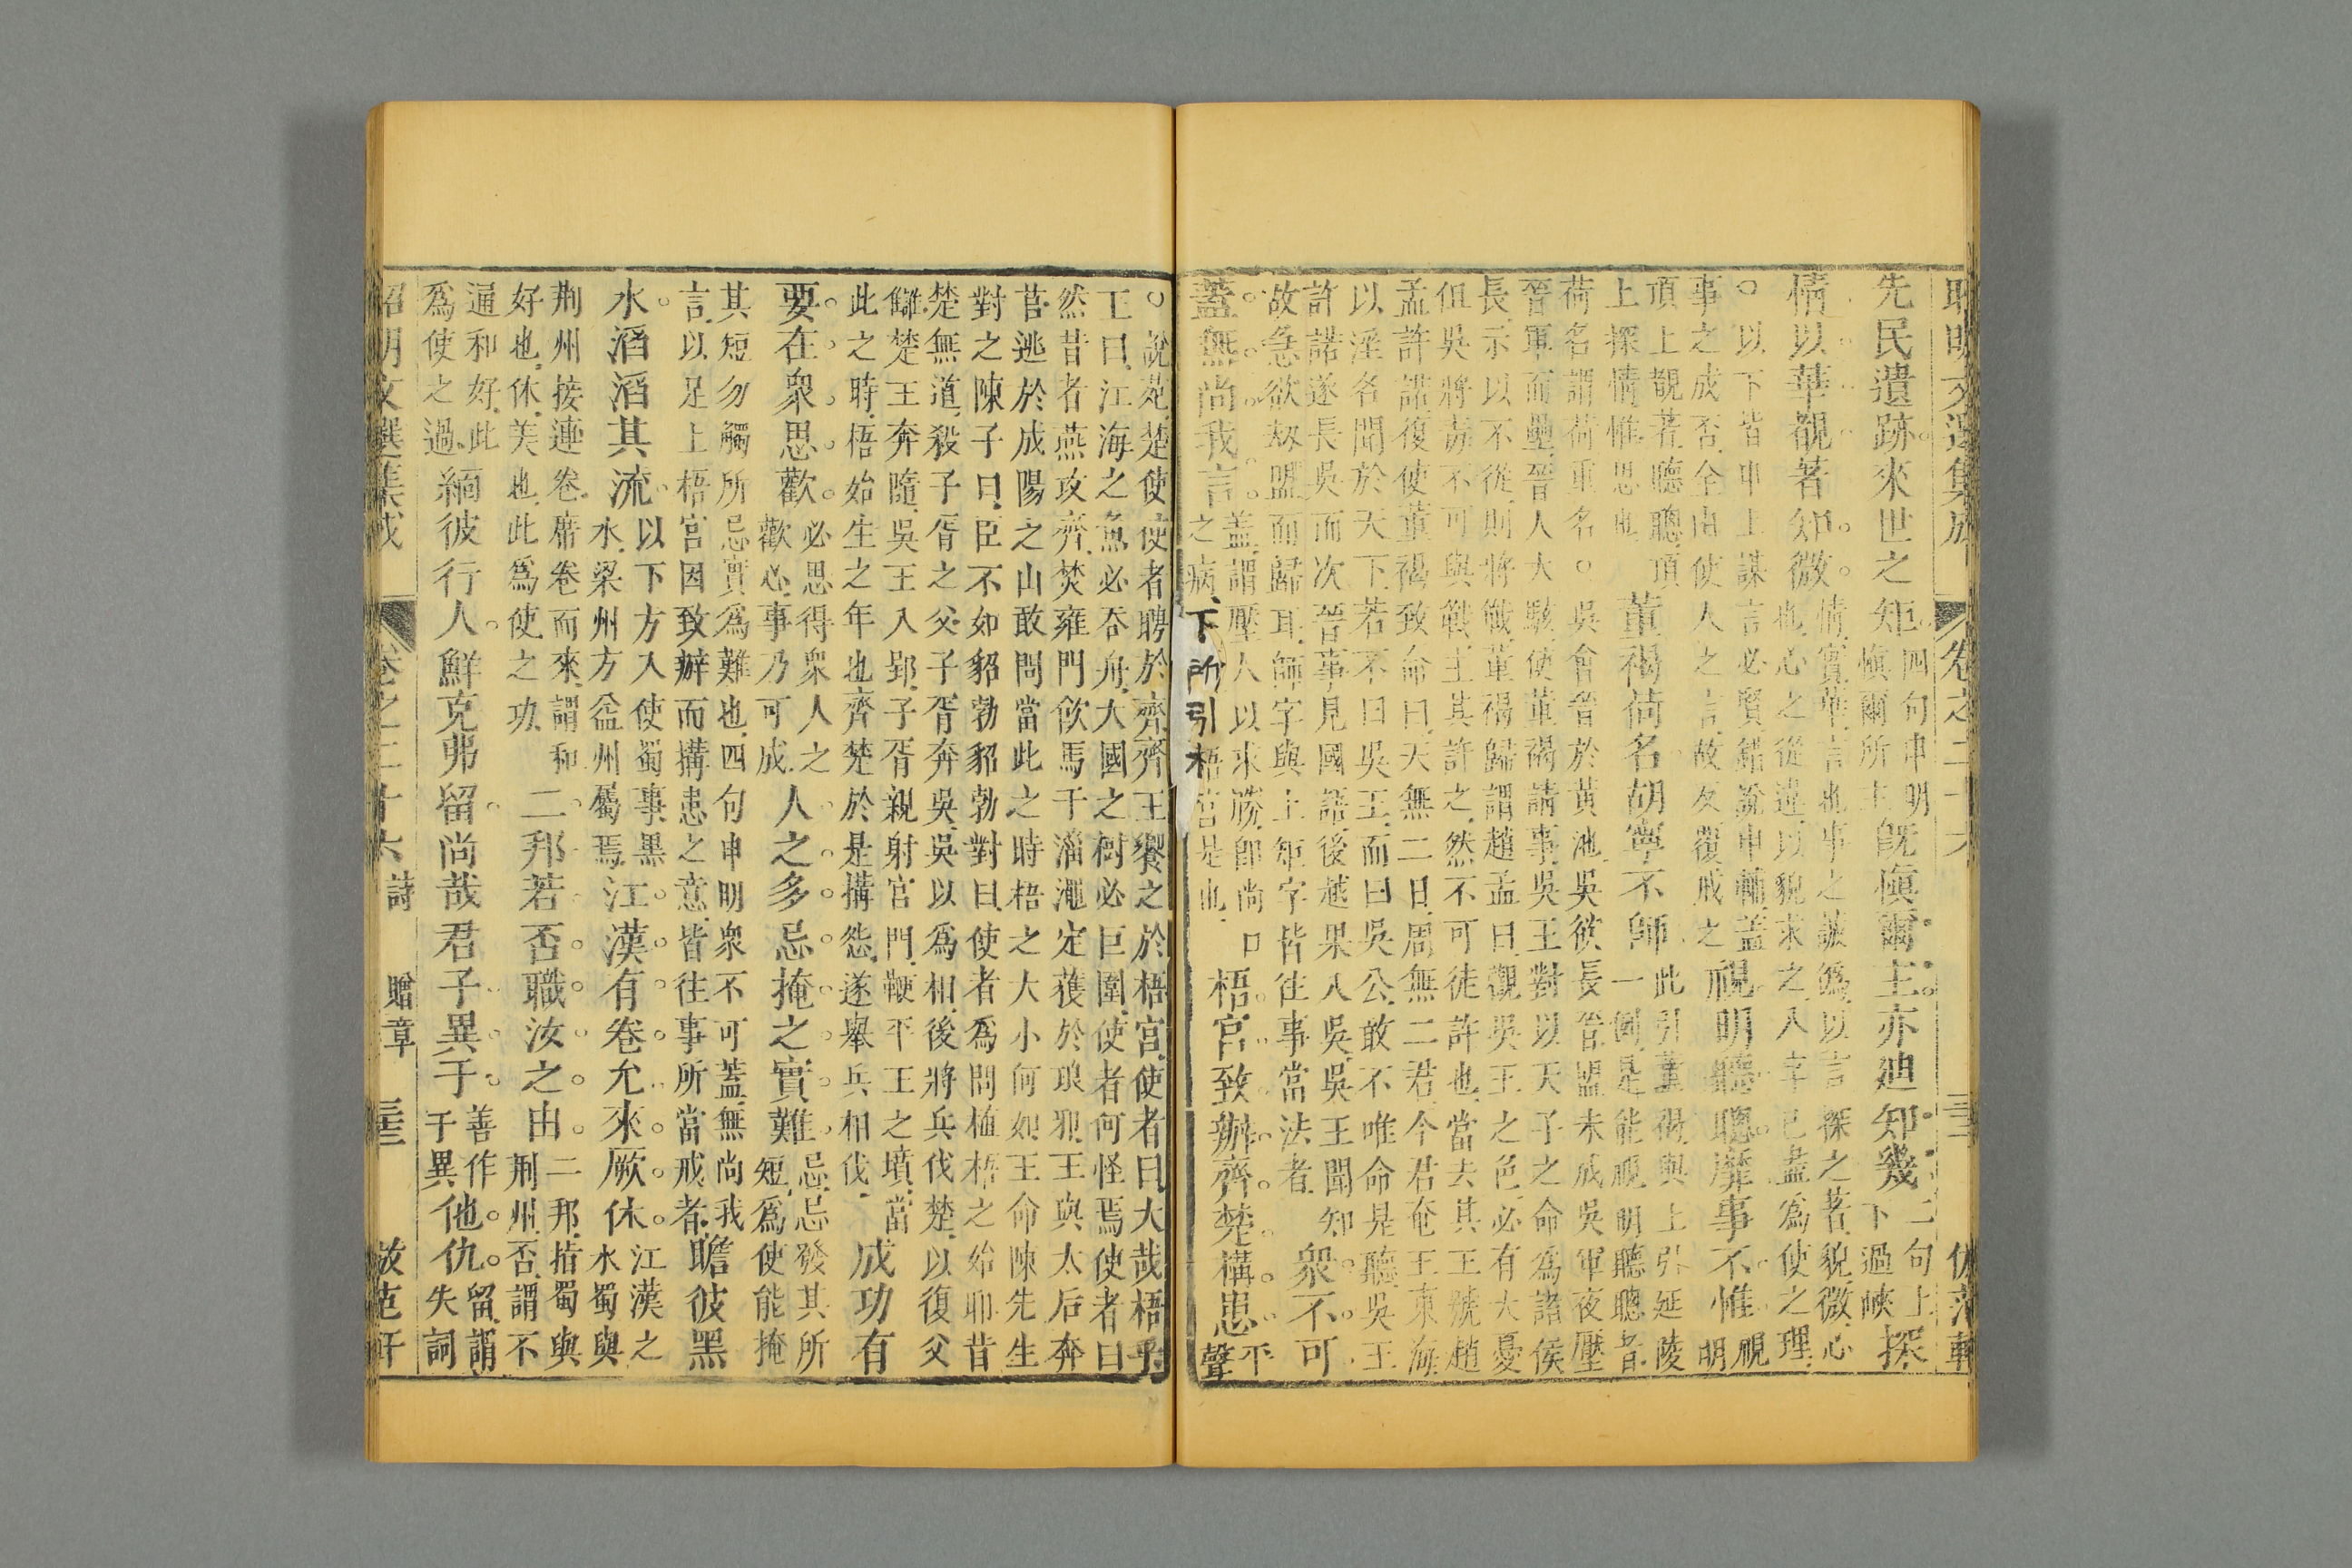 昭明文選集成 卷之二十六
先民遺跡來世之矩四句申明
慎爾所主既慎爾主亦迪知幾二句上
下過峽探
情以華覩著知微情實華言也事之皺為以言探之著貌微心
也心之從違以貌求之人幸已盡為使之理
○以下皆申上謀言必賢錯說申輔蓋
事之成否全由使人之言故反覆戒之視明聽聰靡事不惟視
明
頂上覩著聽聰頂
上探情惟思也董褐荷名胡寧不師此引董褐與上引延陵
一例是能視明聽聰者
荷名謂荷重名○吳會晉於黃池吳欲長晉盟未成吳軍夜壓
晉軍而壘晉人大駭使董褐請事吳王對以天子之命為諸侯
長示以不從則將戰董褐歸謂趙孟曰觀吳王之色必有大憂
但吳將毒不可與戰主其許之然不可徒許也當去其王號趙
孟許諾復使董褐致命曰天無二日周無二君今君奄王東海
以淫名聞於天下若不曰吳王而曰吳公敢不唯命是聽吳王
許諾遂長吳而次晉事見國語後越果入吳吳王聞知
故急欲敓盟而歸耳師字與上矩字皆往事當法者眾不可
蓋無尚我言蓋謂壓人以求勝即尚口
之病下所引梧宮是也梧宮致辯齊楚構患平
聲
○說苑楚使使者聘於齊齊王饗之於梧宮使者曰大哉梧乎
王曰江海之魚必吞舟大國之樹必巨圍使者何怪焉使者曰
然昔者燕攻齊焚雍門飲馬于淄澠定獲於琅邪王與太后奔
莒逃於成陽之山敢問當此之時梧之大小何如王命陳先生
對之陳子曰臣不如貂勃貂勃對曰使者為問植梧之始耶昔
楚無道殺子胥之父子胥奔吳吳以為相後將兵伐楚以復父
讎楚王奔隨吳王入郢子胥親射宮門鞭平王之墳當
此之時梧始生之年也齊楚於是搆怨遂舉兵相伐成功有
要在眾思歡必思得眾人之
歡心事乃可成人之多忌掩之實難忌忌發其所
短為使能掩
其短勿觸所忌實為難也四句申明眾不可蓋無尚我
言以足上梧宮因致辯而搆患之意皆往事所當戒者瞻彼黑
水滔滔其流以下方入使蜀事黑
水梁州方益州屬焉江漢有卷允來厥休江漢之
水蜀與
荊州接連卷席卷而來謂和
好也休美也此為使之功二邦若否職汝之由二邦指蜀與
荊州否謂不
通和好此
為使之過緬彼行人鮮克弗留尚哉君子異于善作
于異他仇留謂
失詞
昭明文選集成 卷之二十六 詩 贈章